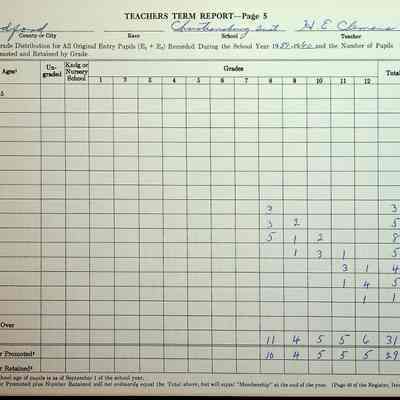 TEACHERS TERM REPORT—Page 5
dford H E Clemens
County or City Race School Teacher
rade Distribution for All Original Entry Pupils (E₁ + E₂) Recorded During the School Year 19 -19 and the Number of Pupils
moted and Retained by Grade.
Ages¹ Un-graded Kndg or Nursery School Grades Total
1 2 3 4 5 6 7 8 9 10 11 12
5
3 3
3 2 5
5 1 2 8
1 3 1 5
3 1 4
1 4 5
1 1
Over
11 4 5 5 6 31
r Promoted² 10 4 5 5 5 29
r Retained²
chool age of pupils is as of September 1 of the school year.
r Promoted plus Number Retained will not necessarily equal the Total above, but will equal "Membership" at the end of the year. (Page of the Register, Item